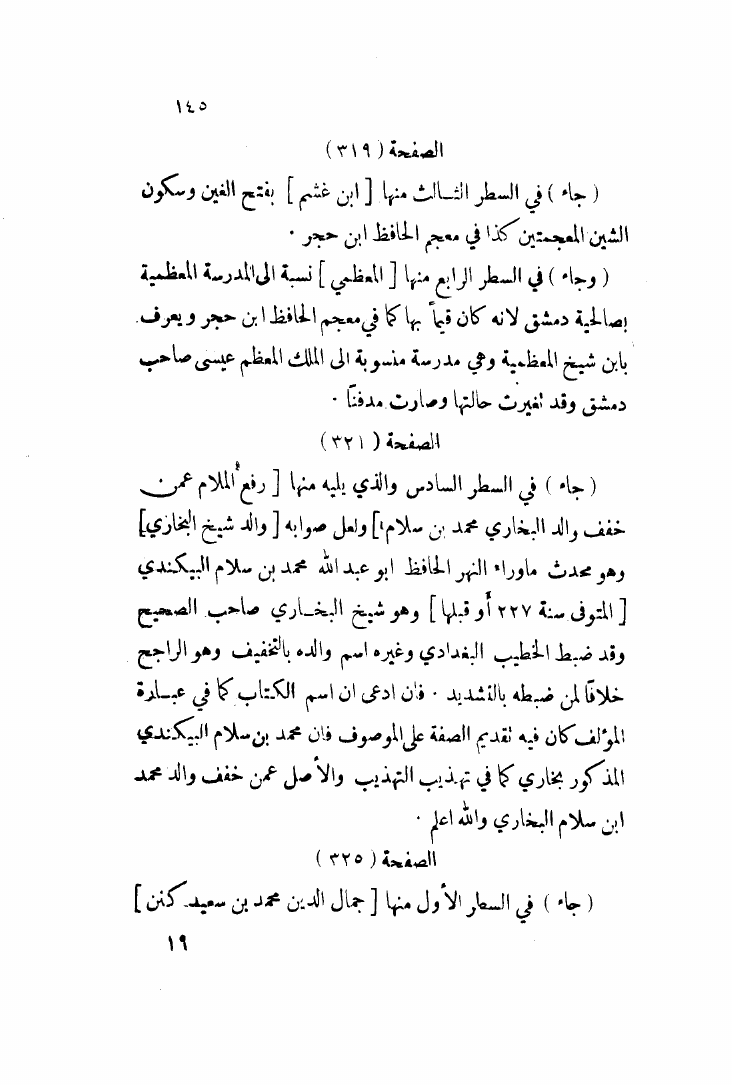 ١٤٥
الصفحة ( ٣١٩ )
( جاء ) في السطر الثالث منها [ ابن غشم ] بفتح الغين وسكون
الشين المعجمتين كذا في معجم الحافظ ابن حجر ٠
( وجاء ) في السطر الرابع منها [ المعظمي ] نسبة الى المدرسة المعظمية
بصالحية دمشق لانه كان قيماً بها كما في معجم الحافظ ابن حجر ويعرف
بابن شيخ المعظمية وهي مدرسة منسوبة الى الملك المعظم عيسى صاحب
دمشق وقد تغيرت حالتها وصارت مدفناً ٠
الصفحة ( ٣٢١ )
( جاء ) في السطر السادس والذي يليه منها [ رفع الملام عمن
خفف والد البخاري محمد بن سلام ] ولعل صوابه [ والد شيخ البخاري ]
وهو محدث ماوراء النهر الحافظ ابو عبد الله محمد بن سلام البيكندي
[ المتوفى سنة ٢٢٧ أو قبلها ] وهو شيخ البخاري صاحب الصحيح
وقد ضبط الخطيب البغدادي وغيره اسم والده بالتخفيف وهو الراجح
خلافاً لمن ضبطه بالتشديد ٠ فان ادعى ان اسم الكتاب كما في عبارة
المؤلف كان فيه تقديم الصفة على الموصوف فان محمد بن سلام البيكندي
المذكور بخاري كما في تهذيب التهذيب والأصل عمن خفف والد محمد
ابن سلام البخاري والله اعلم ٠
الصفحة ( ٣٢٥ )
( جاء ) في السطر الأول منها [ جمال الدين محمد بن سعيد كنن ]
١٩